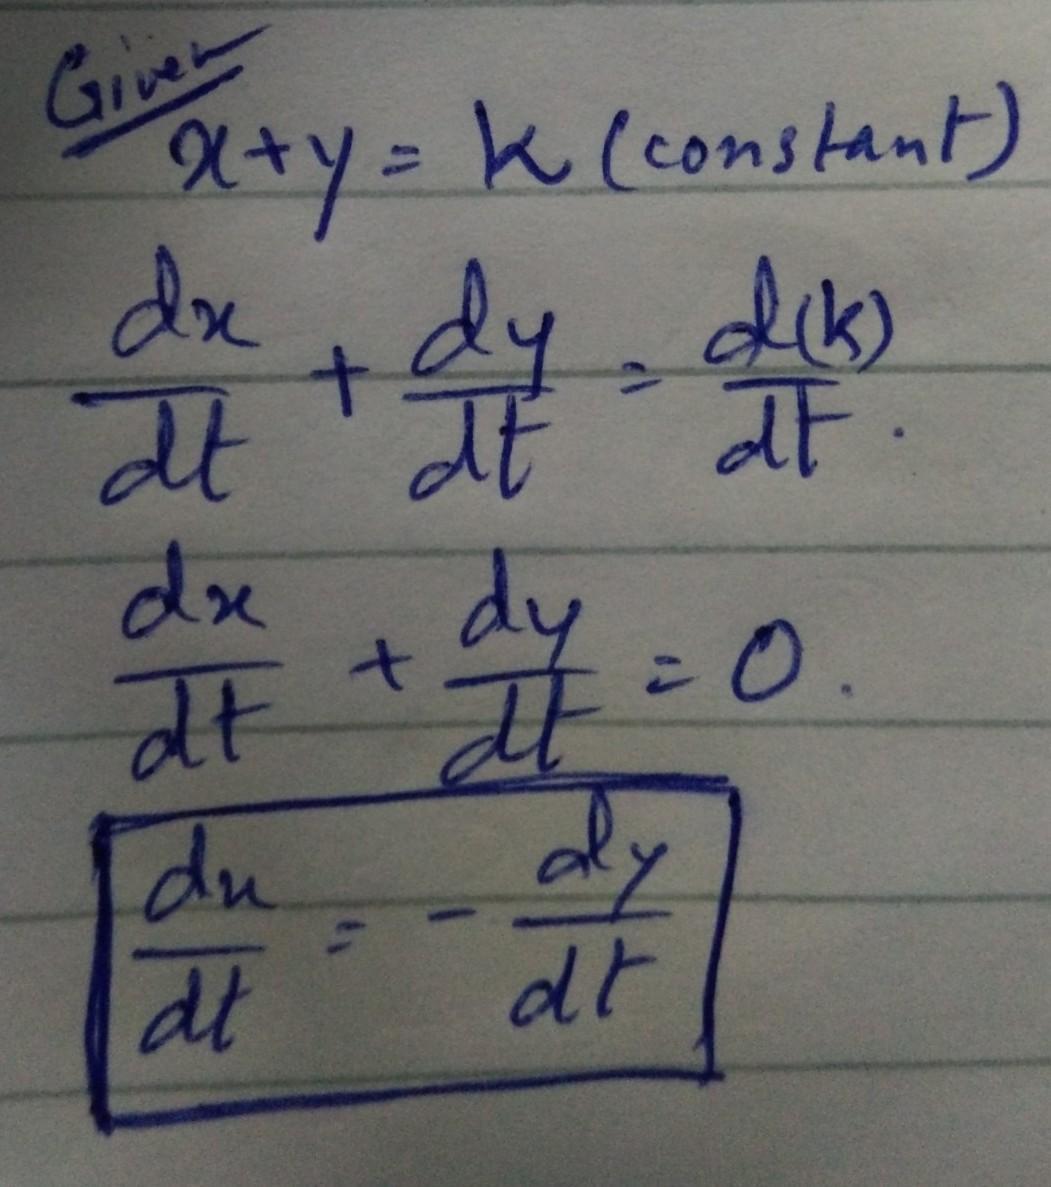 Given
x+y = k (constant)
dx/dt + dy/dt = d(k)/dt .
dx/dt + dy/dt = 0 .
dx/dt = - dy/dt